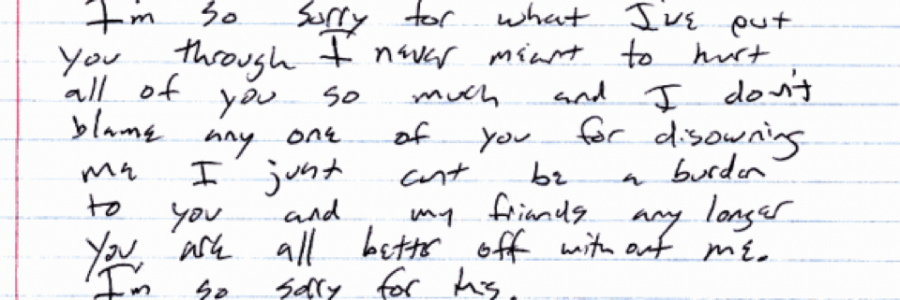 I'm so sorry for what I've put
you through I never meant to hurt
all of you so much and I don't
blame any one of you for disowning
me I just cant be a burden
to you and my friends any longer
you are all better off without me.
I'm so sorry for this.